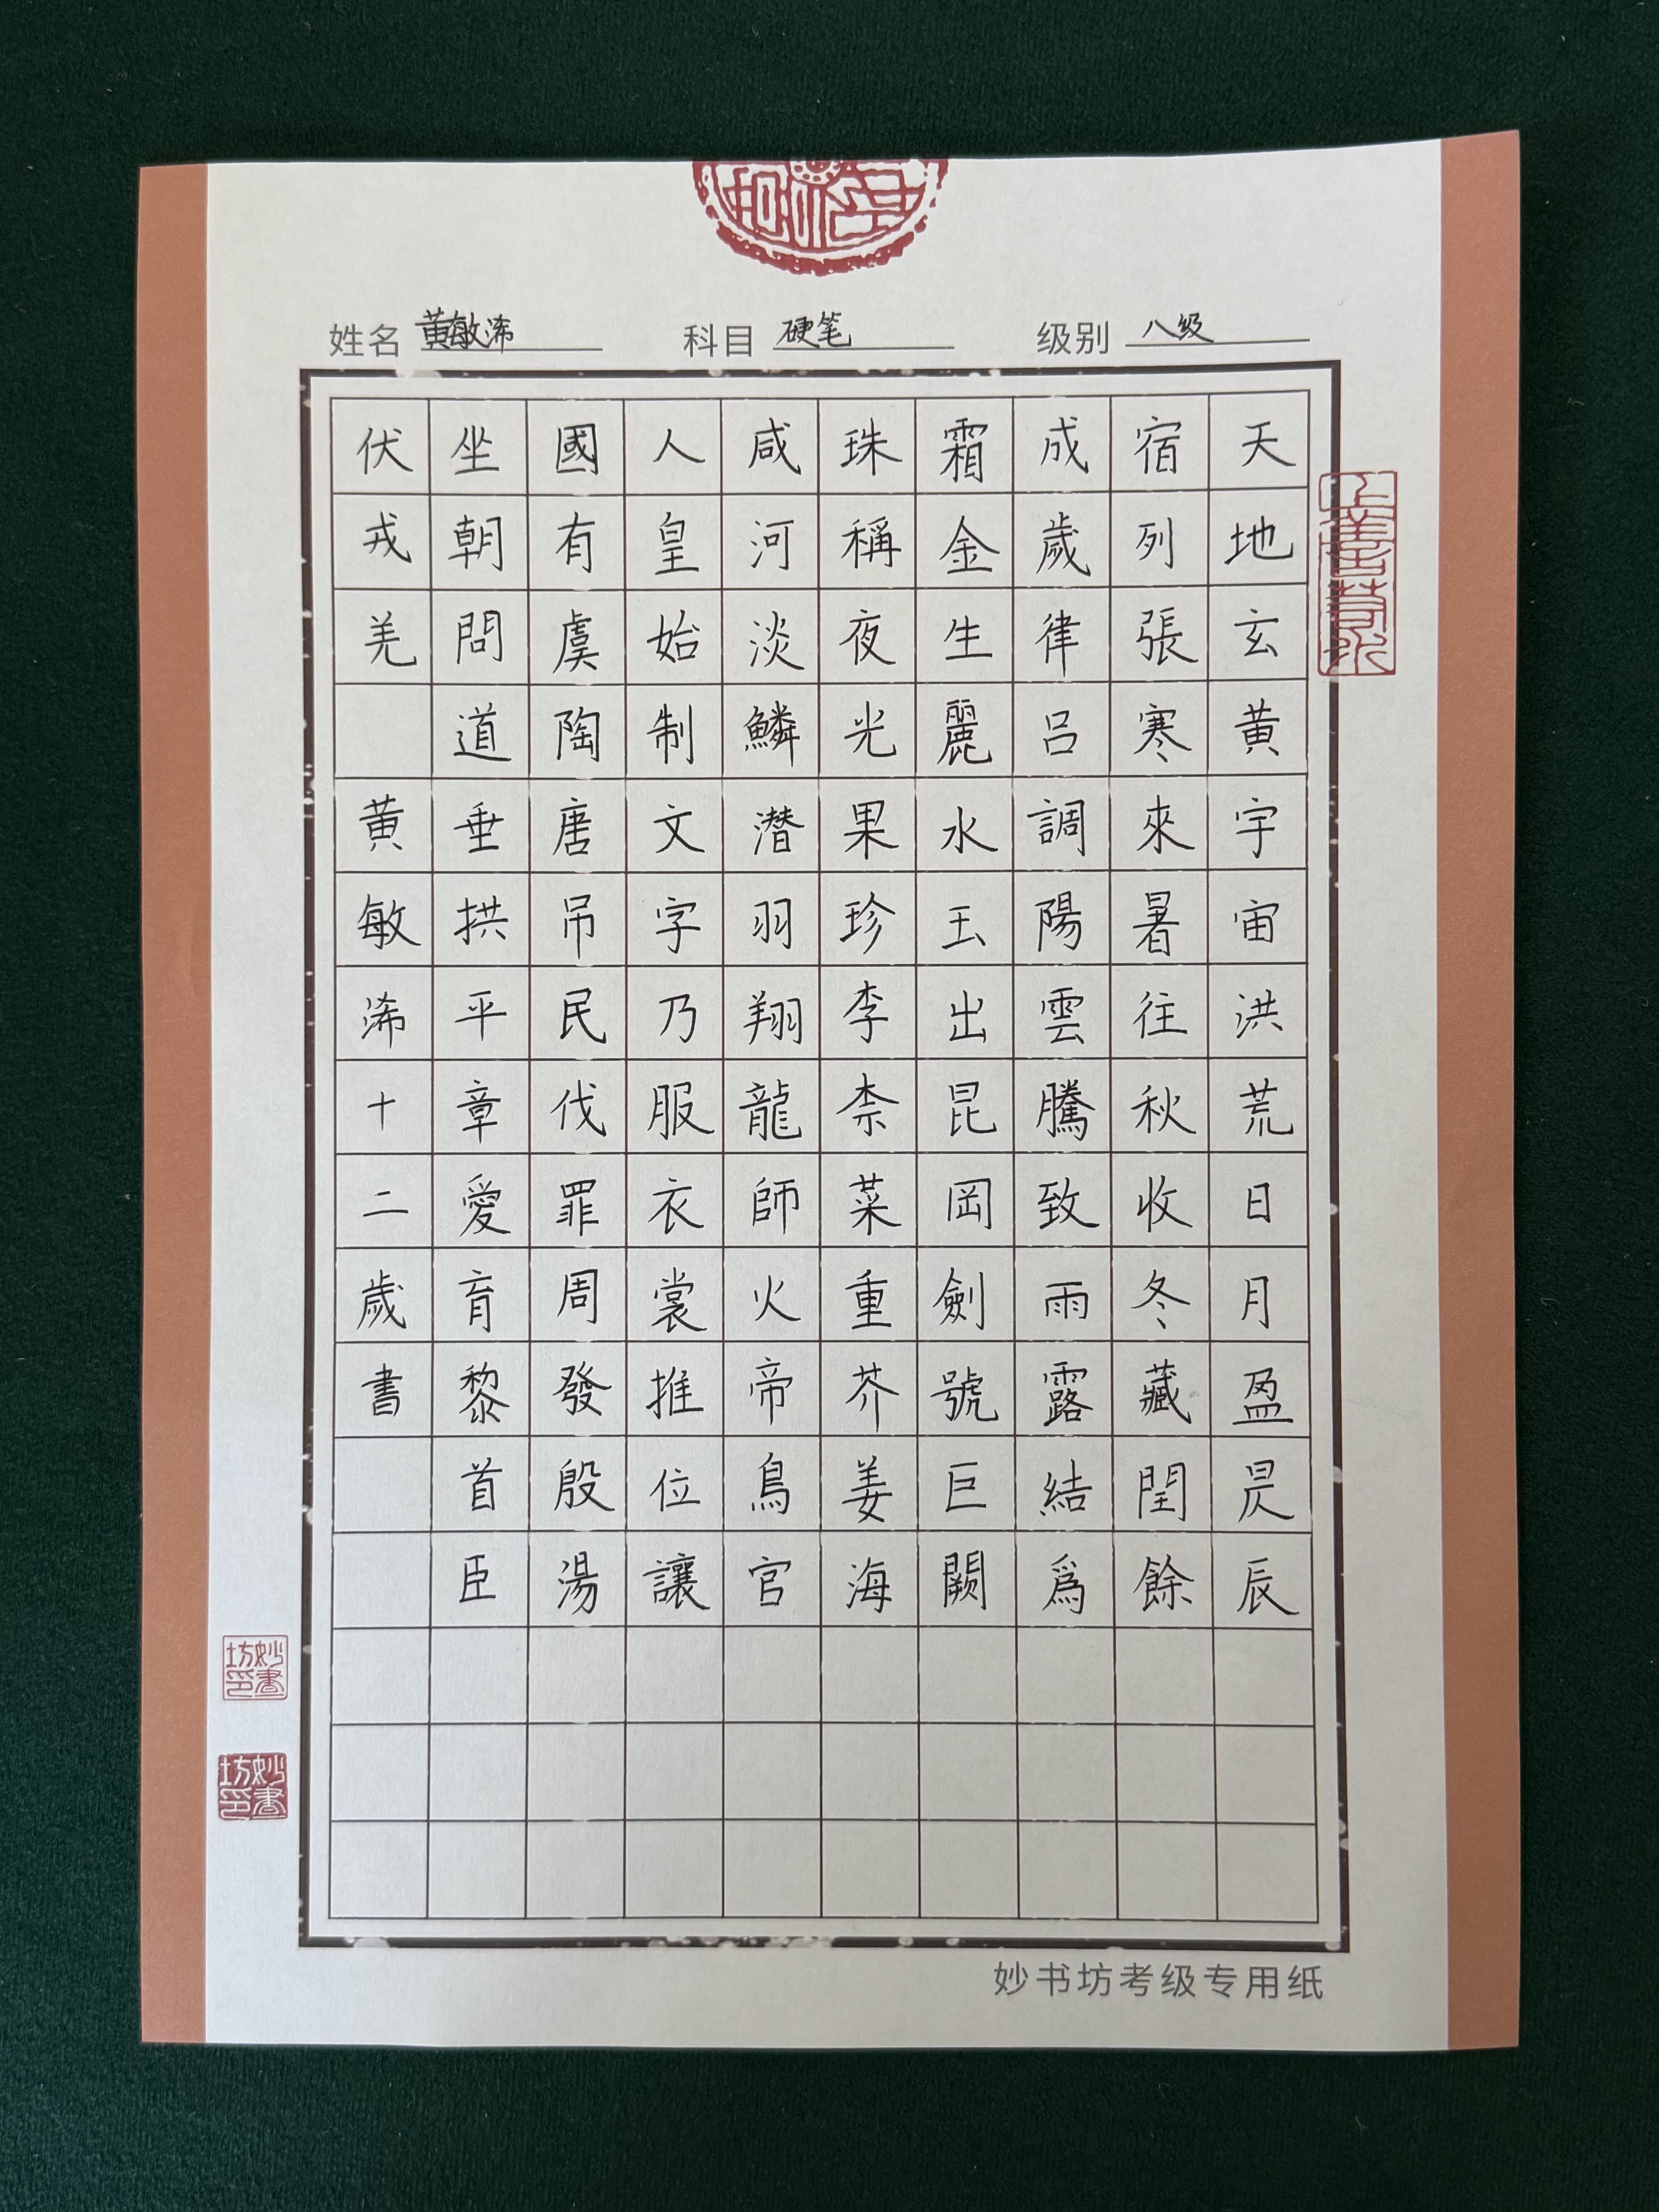 姓名 黄敏浠 科目 硬笔 级别 八级
天地玄黄宇宙洪荒日月盈昃辰
宿列張寒來暑往秋收冬藏閏餘
成歲律呂調陽雲騰致雨露結爲
霜金生麗水玉出昆岡劍號巨闕
珠稱夜光果珍李柰菜重芥姜海
咸河淡鱗潜羽翔龍師火帝鳥官
人皇始制文字乃服衣裳推位讓
國有虞陶唐吊民伐罪周發殷湯
坐朝問道垂拱平章愛育黎首臣
伏戎羌 黄敏浠十二歲書
妙書坊印
妙書坊印
妙书坊考级专用纸